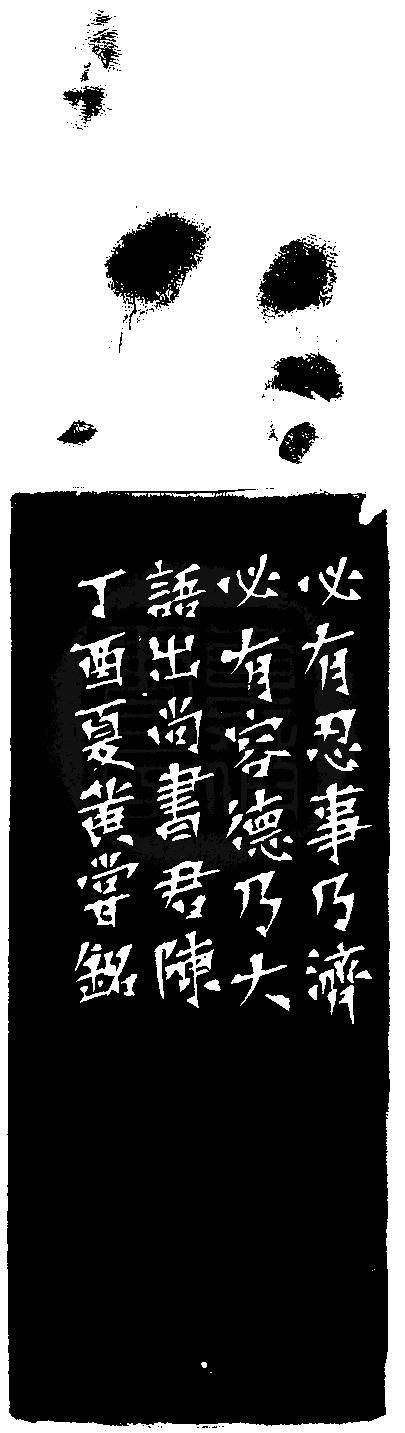 必有忍事乃濟
必有容德乃大
語出尚書君陳
丁酉夏黃嘗銘